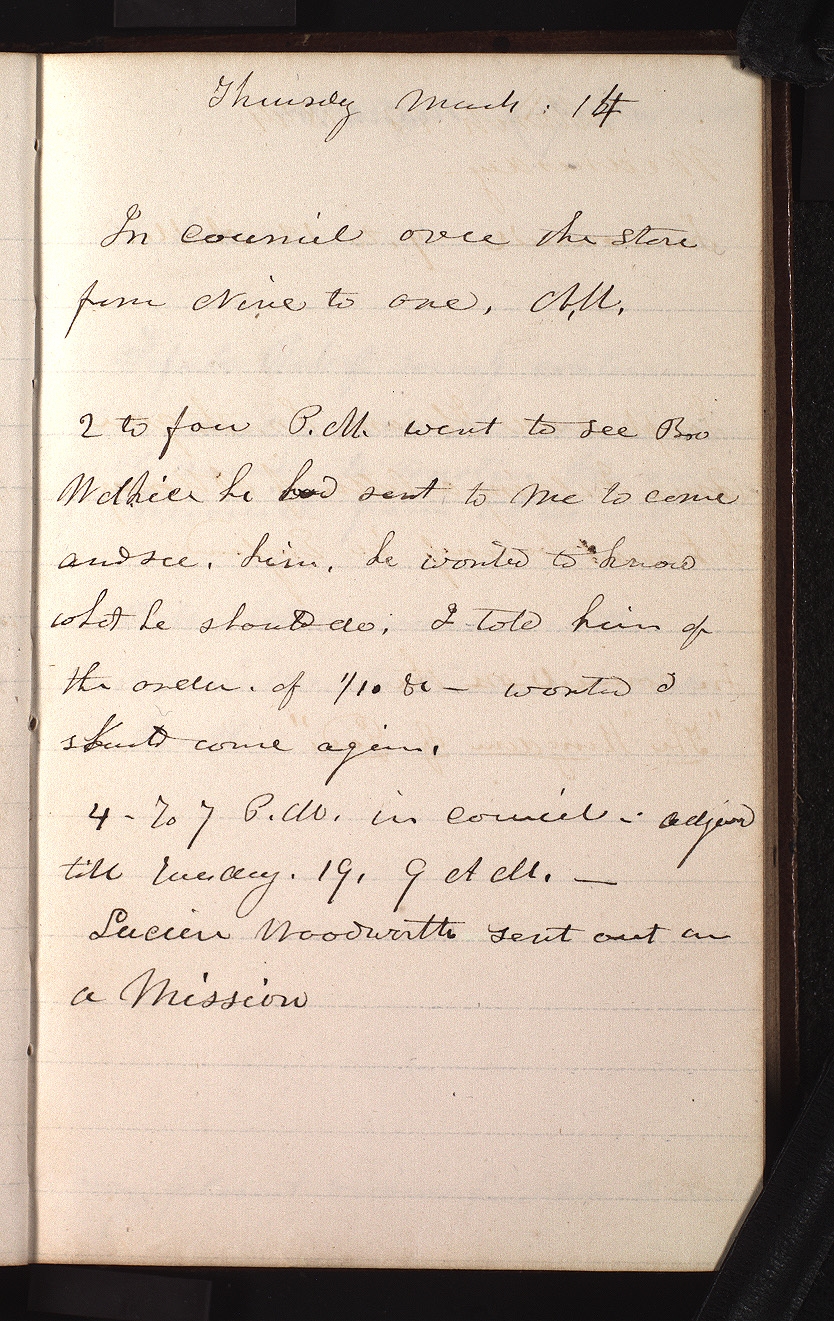 Thursdy March. 14
In council over the store
from Nine to one, A,M.
2 to four P.M. went to see Bro
he had sent to me to come
and see, him, he wonted to know
what he should do, I told him of
the order. of 1/10. &c — wonted I
should come again,
4 - To 7 P.M. in council - adjond
till Tuesday. 19, 9 A M. —
Lucien Woodworth sent out on
a Mission